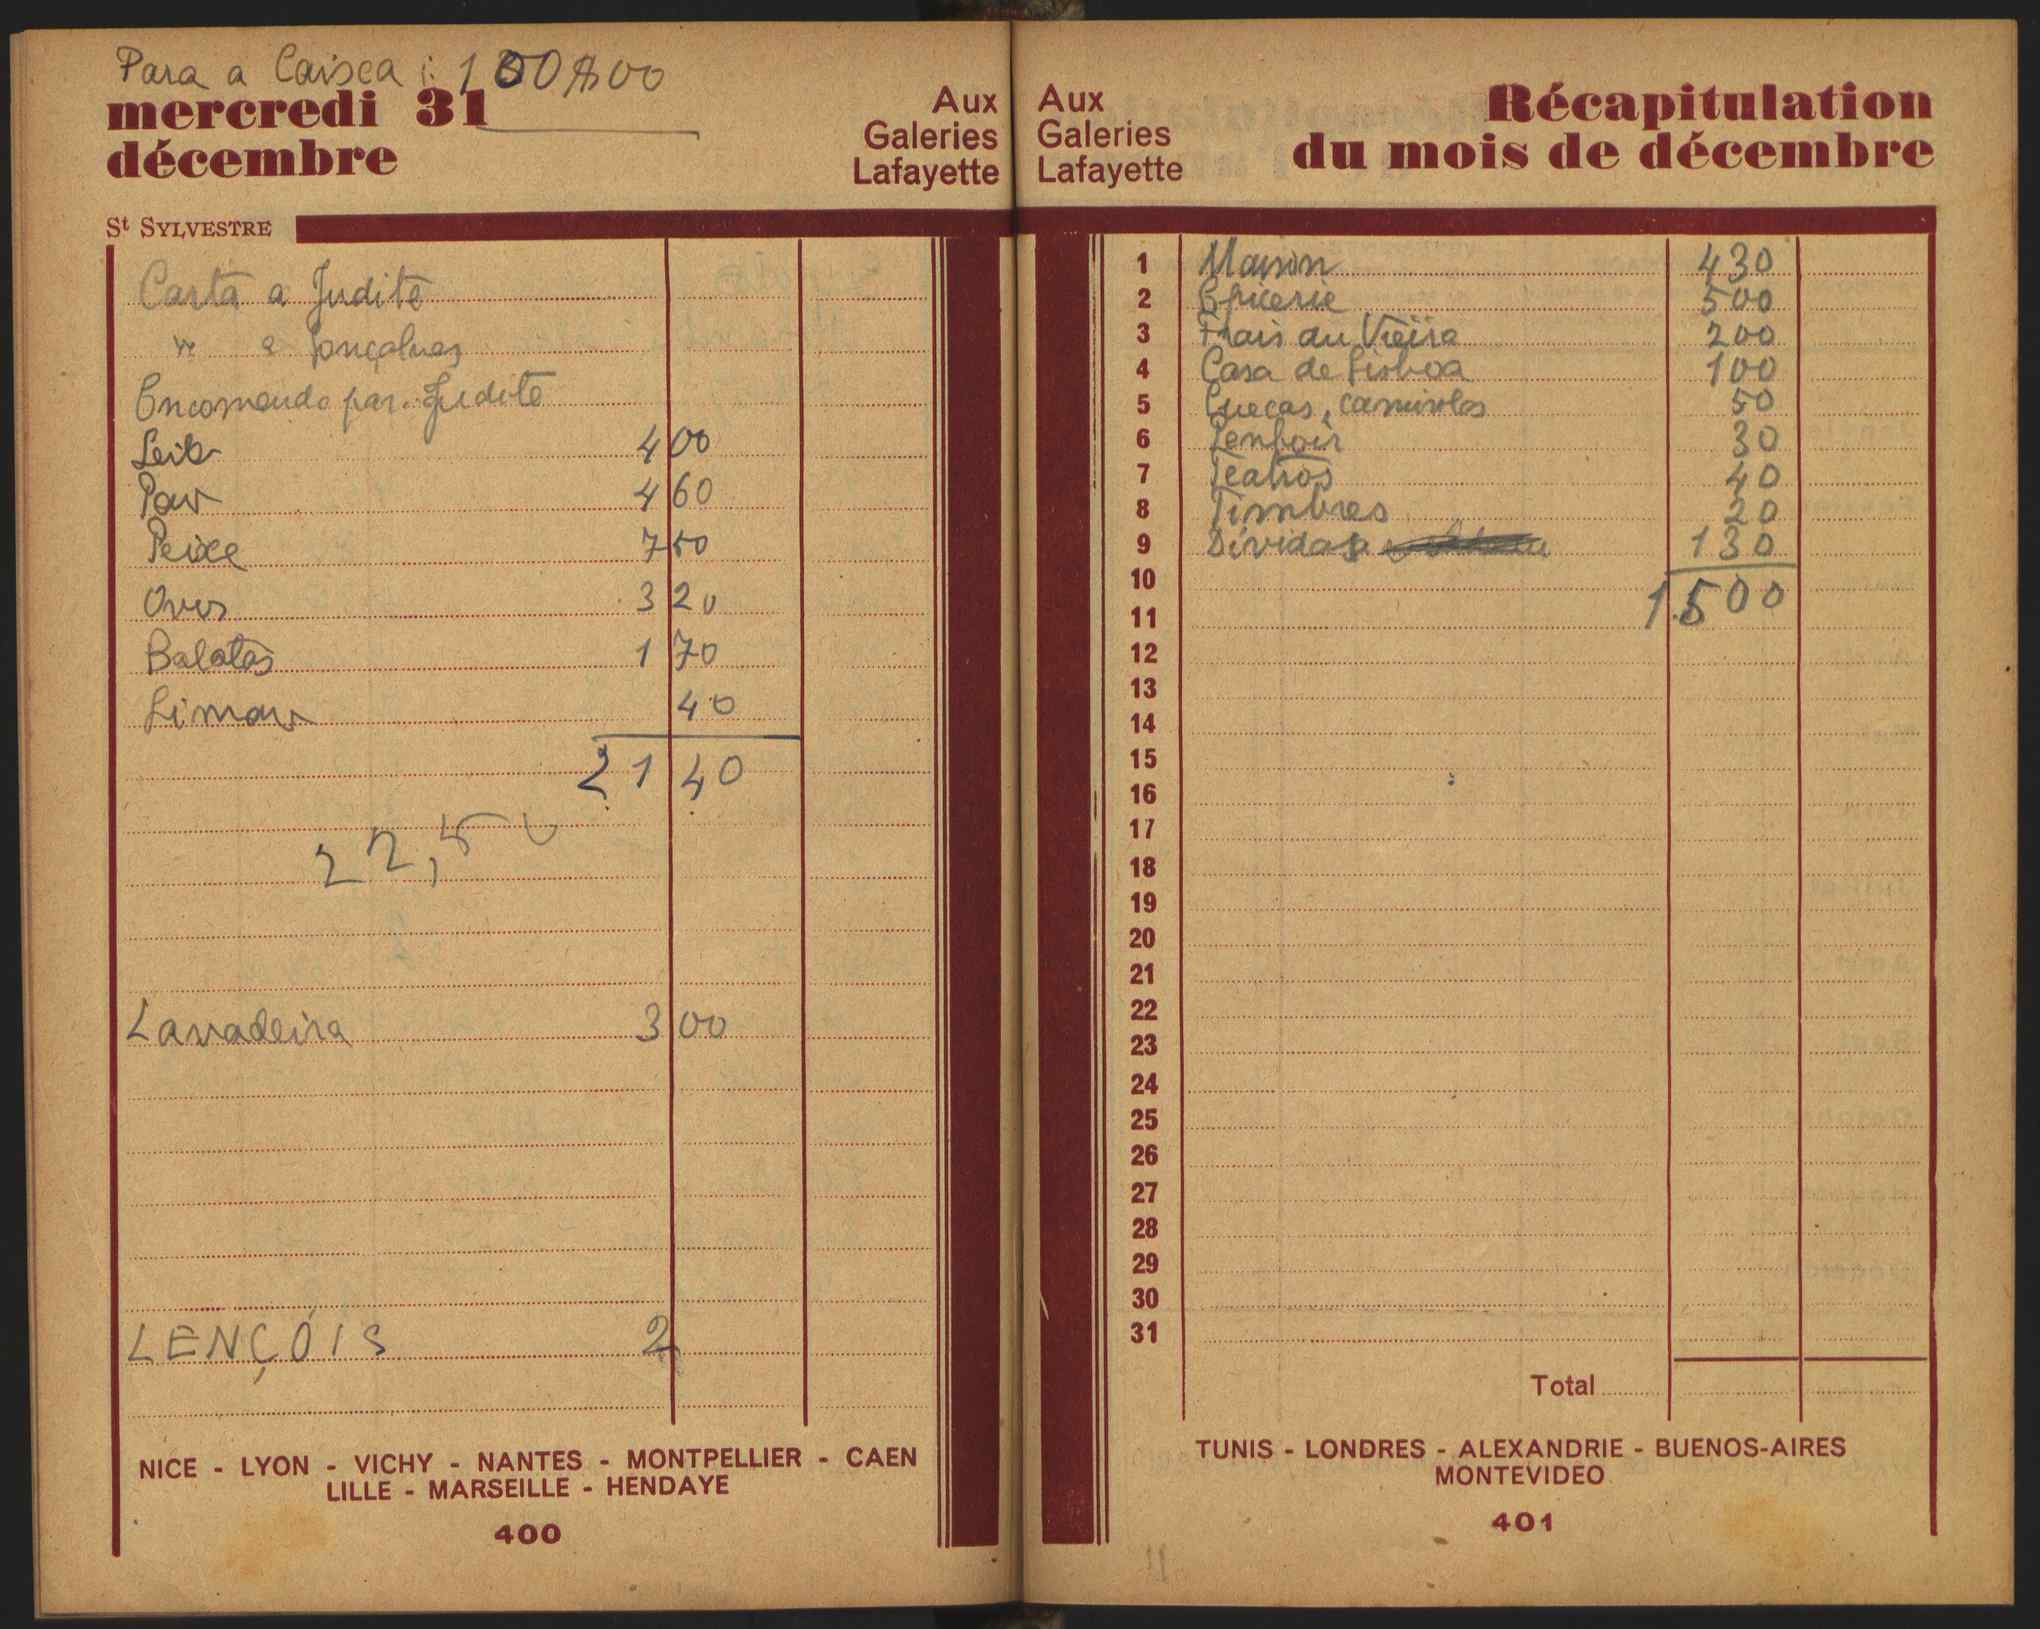 Para a Caisca : 100$00
mercredi 31
décembre
Aux
Galeries
Lafayette
St SYLVESTRE
Carta a Judite
" a Gonçalves
Encomenda par. Judite
Leite 4 00
Pão 4 60
Peixe 7 50
Ovos 3 20
Batatas 1 70
Limão 40
21 40
22,50
Lavadeira 3 00
LENÇÓIS 2
NICE - LYON - VICHY - NANTES - MONTPELLIER - CAEN
LILLE - MARSEILLE - HENDAYE
400
Aux
Galeries
Lafayette
Récapitulation
du mois de décembre
1 Maison 430
2 Epicerie 500
3 Frais du Vieira 200
4 Casa de Lisboa 100
5 Cuecas, camisolas 50
6 30
7 Teatros 40
8 Timbres 20
9 Dividas 130
10
11 1.500
12
13
14
15
16
17
18
19
20
21
22
23
24
25
26
27
28
29
30
31
Total
TUNIS - LONDRES - ALEXANDRIE - BUENOS-AIRES
MONTEVIDEO
401